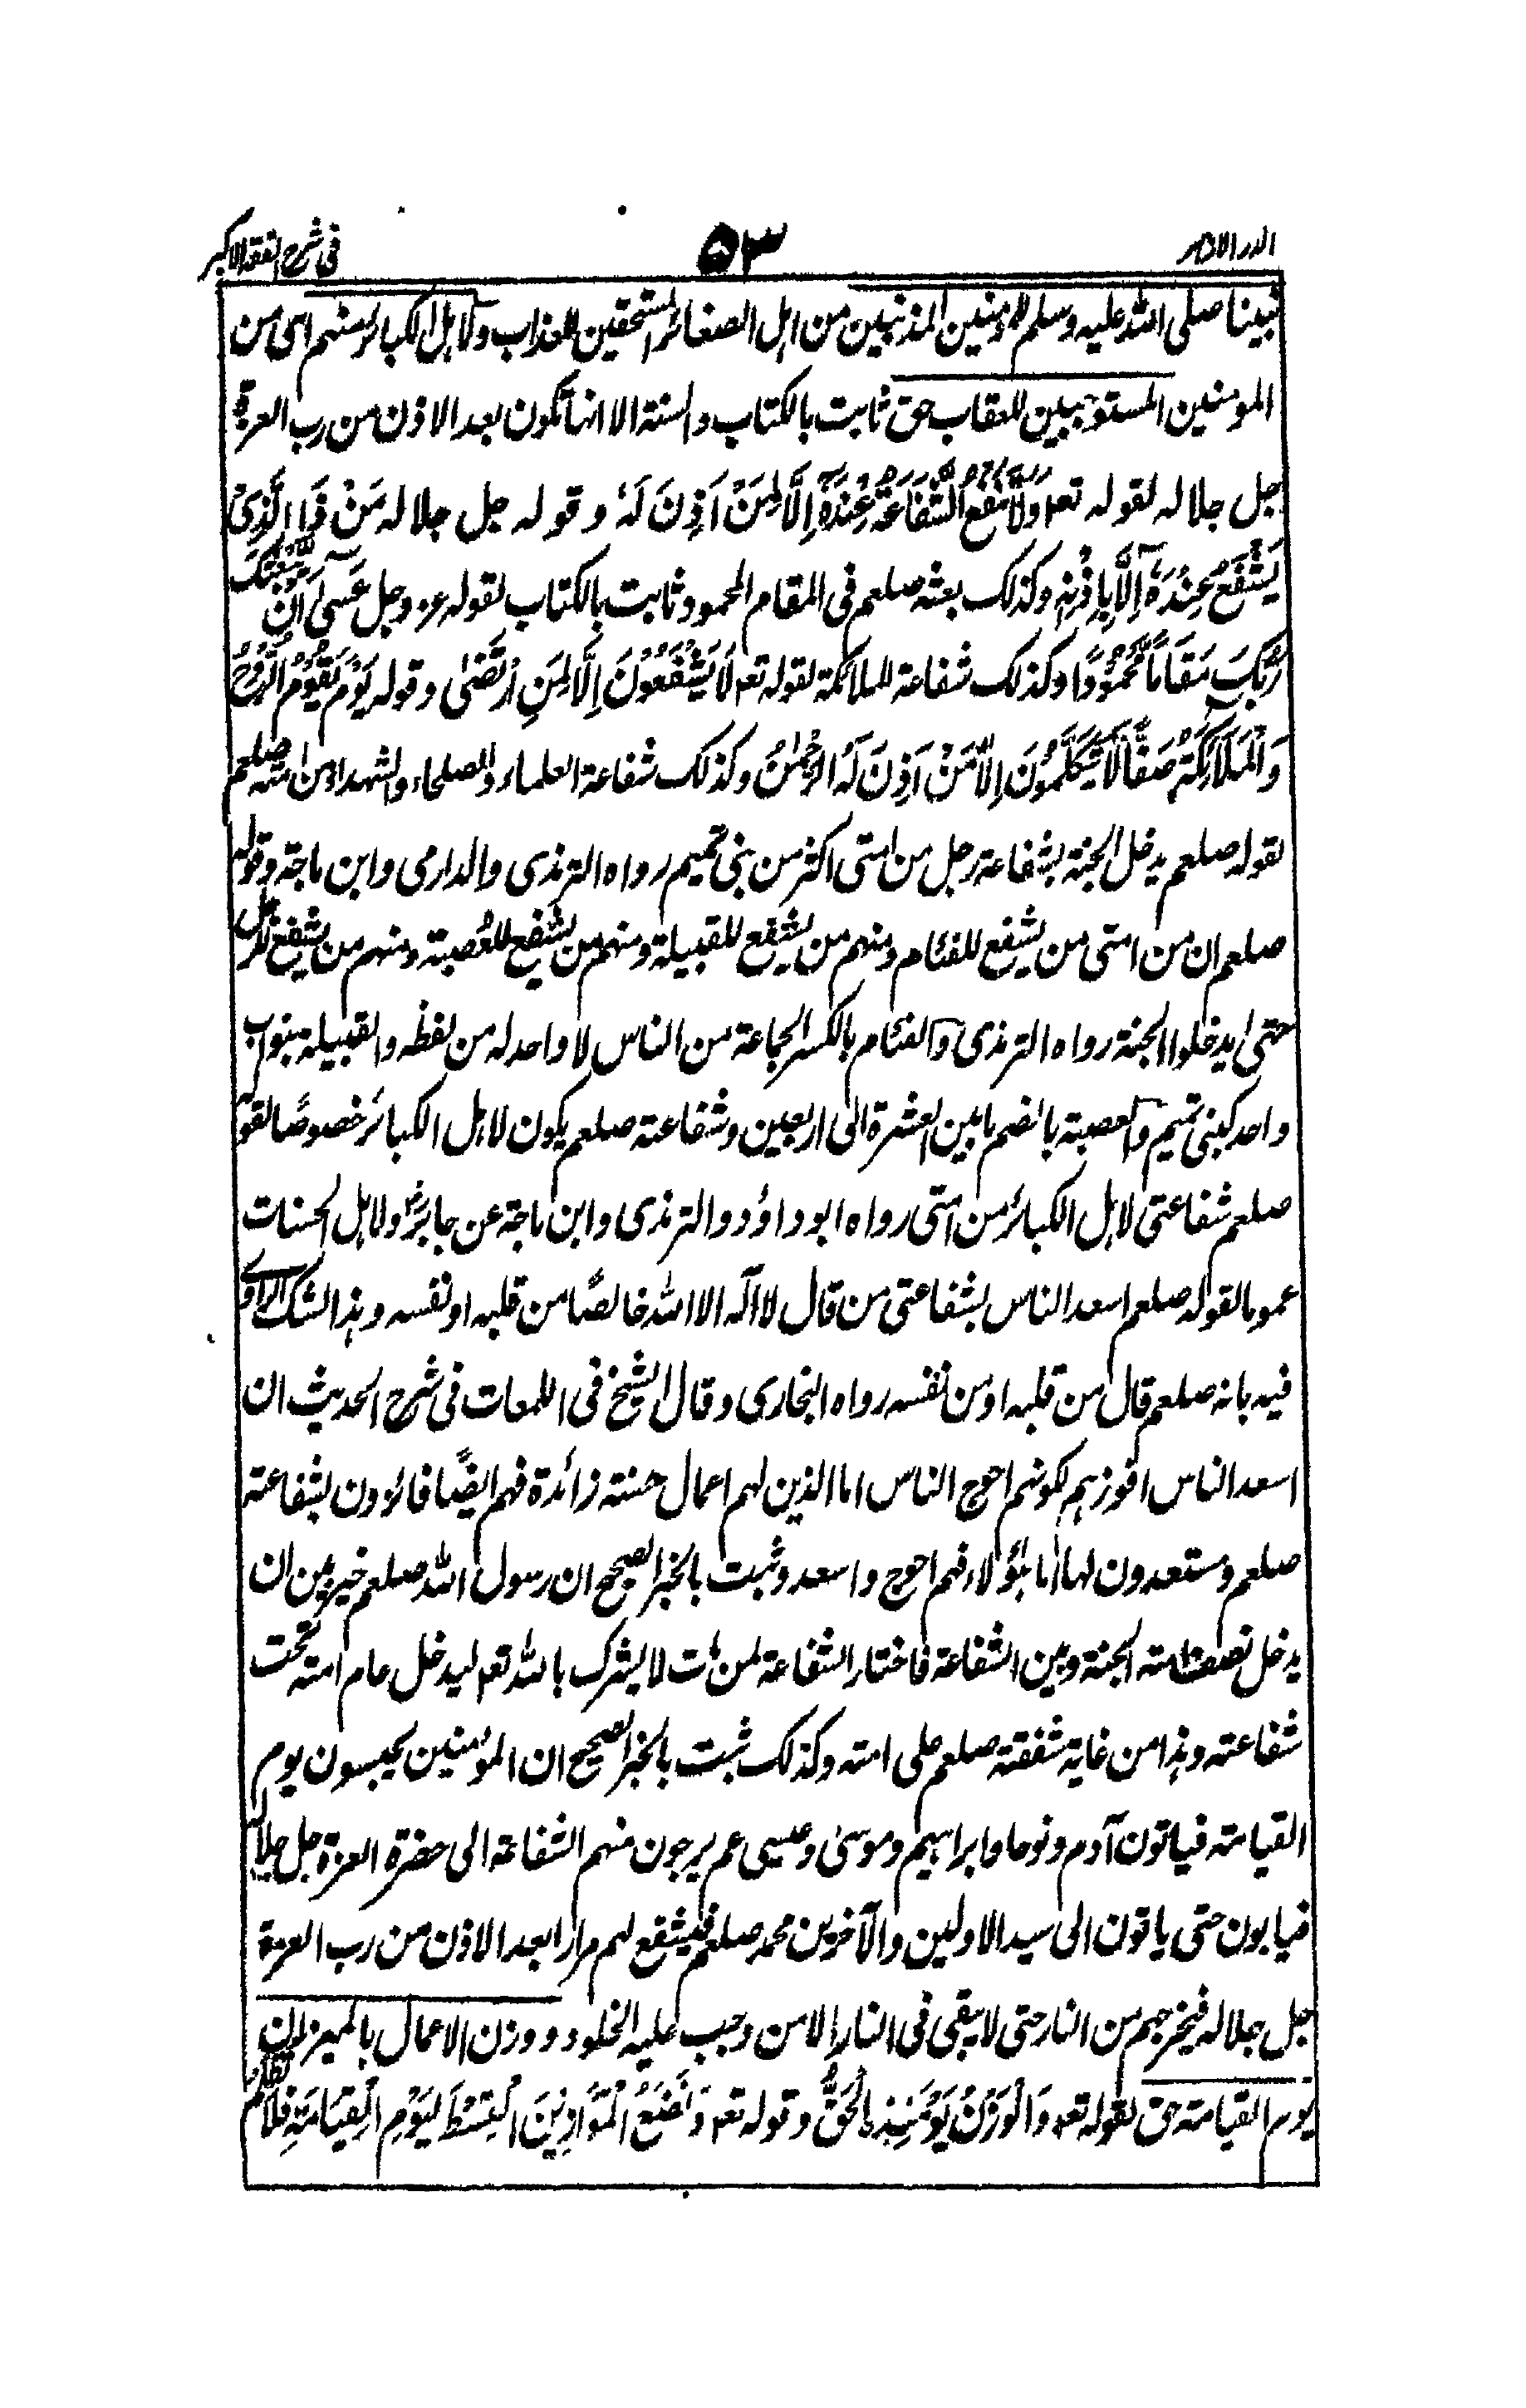 الدر الازهر ۵۳ فی شرح الفقه الاکبر
نبینا صلی الله علیه وسلم للمؤمنین المذنبین من اهل الصغائر المستحقین للعذاب ولاهل الکبائر منهم ای من
المومنین المستوجبین للعقاب حق ثابت بالکتاب والسنة الا انها تکون بعد الاذن من رب العزة
جل جلاله لقوله تعم وَلَا تَنْفَعُ الشَّفَاعَةُ عِنْدَهٗ اِلَّا لِمَنْ اَذِنَ لَهٗ وقوله جل جلاله مَنْ ذَا الَّذِیْ
یَشْفَعُ عِنْدَهٗ اِلَّا بِاِذْنِهٖ وکذلک بعثه صلعم فی المقام المحمود ثابت بالکتاب لقوله عز وجل عَسٰی اَن یَّبْعَثَکَ
رَبُّکَ مَقَامًا مَّحْمُوْدًا وکذلک شفاعة للملائکة لقوله تعم لَا یَشْفَعُوْنَ اِلَّا لِمَنِ ارْتَضٰی وقوله یَوْمَ یَقُوْمُ الرُّوْحُ
وَالْمَلَآئِکَةُ صَفًّا لَّا یَتَکَلَّمُوْنَ اِلَّا مَنْ اَذِنَ لَهُ الرَّحْمٰنُ وکذلک شفاعة العلماء والصلحاء والشهداء من امته صلعم
لقوله صلعم یدخل الجنة بشفاعة رجل من امتی اکثر من بنی تمیم رواه الترمذی والدارمی وابن ماجة وقوله
صلعم ان من امتی من یشفع للفئام ومنهم من یشفع للقبیلة ومنهم من یشفع للعُصبة ومنهم من یشفع للرجل
حتیٰ یدخلوا الجنة رواه الترمذی والفئام بالکسر الجماعة من الناس لا واحد له من لفظه والقبیلة بنو اب
واحد کبنی تمیم والعصبة بالضم ما بین العشرة الیٰ اربعین وشفاعته صلعم یکون لاهل الکبائر خصوصًا لقوله
صلعم شفاعتی لاهل الکبائر من امتی رواه ابو داؤد والترمذی وابن ماجة عن جابرؓ ولاهل الحسنات
عموما لقوله صلعم اسعد الناس بشفاعتی من قال لا اله الا الله خالصًا من قلبه او نفسه وهذا الشک للراوی
فیه بانه صلعم قال من قلبه او من نفسه رواه البخاری وقال الشیخ فی اللمعات فی شرح الحدیث ان
اسعد الناس افوزهم لکونهم احوج الناس اما الذین لهم اعمال حسنة زائدة فهم ایضًا فائزون بشفاعة
صلعم ومستعدون لها اما هؤلاء فهم احوج واسعد وثبت بالخبر الصحیح ان رسول الله صلعم خیر بین ان
یدخل نصف امته الجنة وبین الشفاعة فاختار الشفاعة لمن مات لا یشرک بالله تعم لیدخل عام امته تحت
شفاعته وهذا من غایة شفقته صلعم علی امته وکذلک ثبت بالخبر الصحیح ان المؤمنین یحبسون یوم
القیامة فیاتون آدم ونوحا وابراهیم وموسیٰ وعیسی عم یرجون منهم الشفاعة الی حضرة العزة جل جلاله
فیابون حتی یاتون الی سید الاولین والآخرین محمد صلعم فیشفع لهم مرارا بعد الاذن من رب العزة
جل جلاله فیخرجهم من النار حتی لا یبقی فی النار الا من وجب علیه الخلود ووزن الاعمال بالمیزان
یوم القیامة حق لقوله تعم وَالْوَزْنُ یَوْمَئِذِ ۨالْحَقُّ وقوله تعم وَنَضَعُ الْمَوَازِیْنَ الْقِسْطَ لِیَوْمِ الْقِیَامَةِ فَلَا تُظْلَمُ